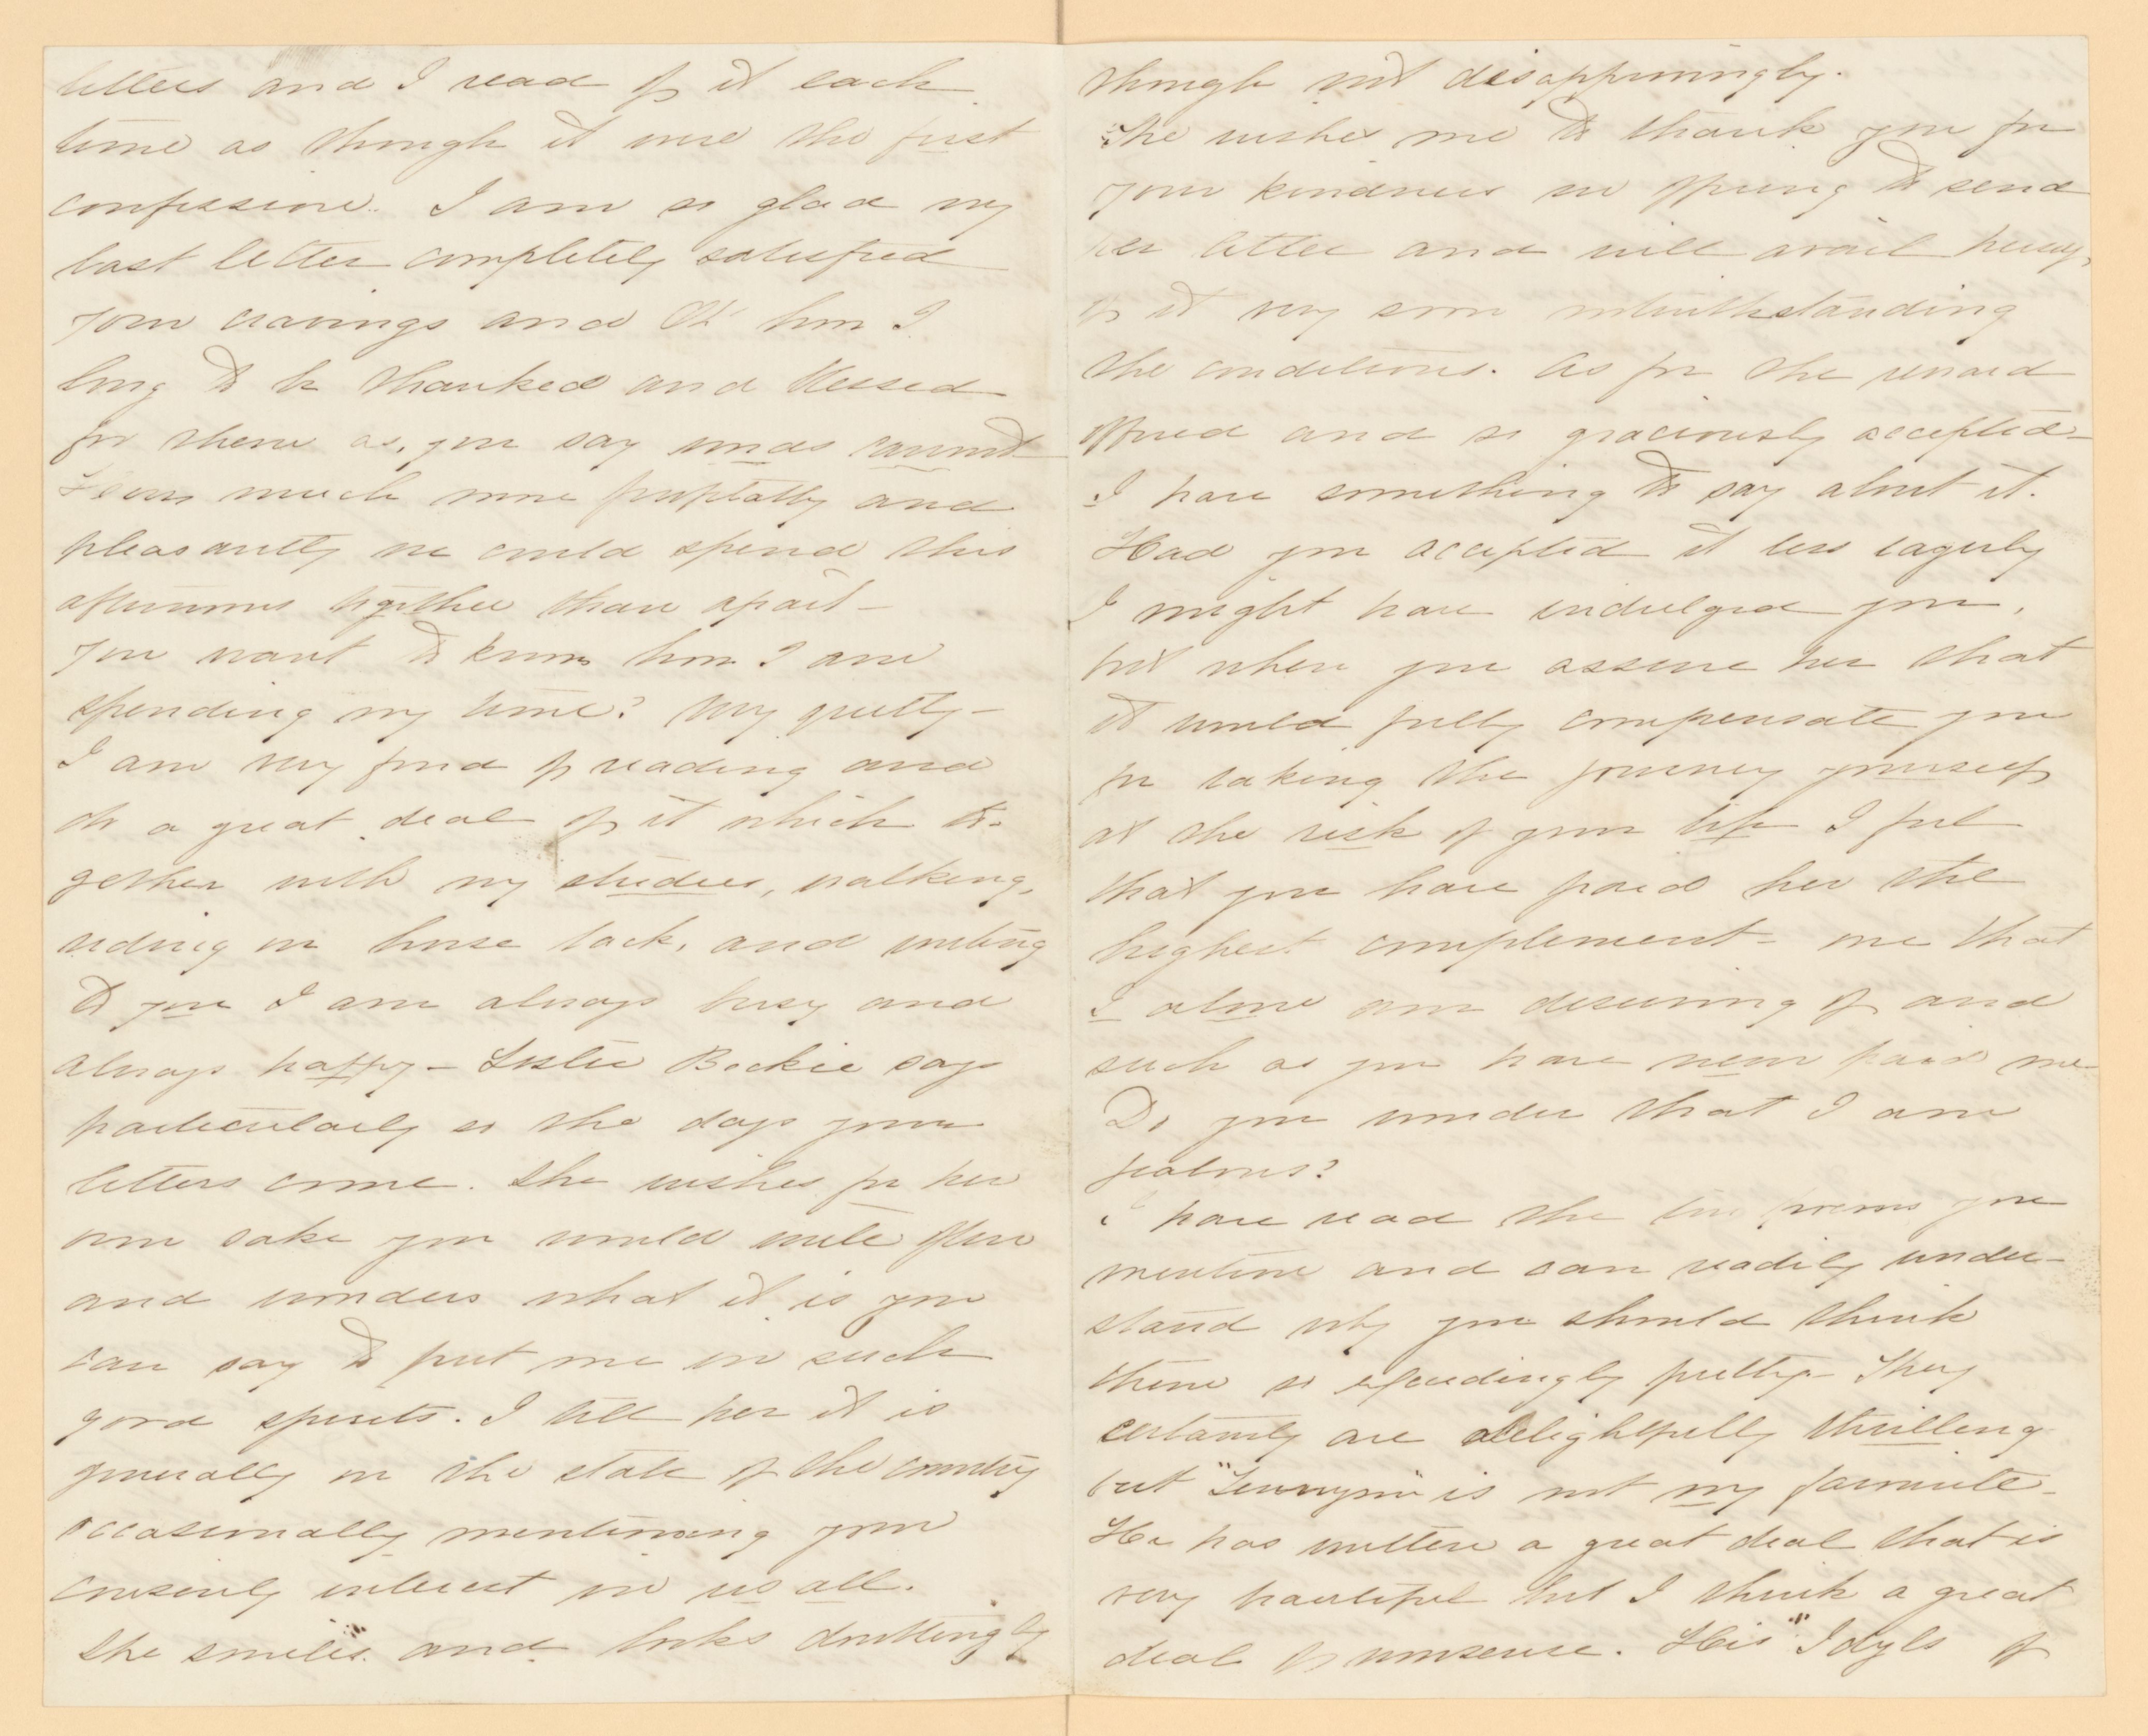 letters and I read of it each
time as though it were the first
confession. I am so glad my
last letter completely satisfied
your cravings and Oh! how I
long to be thanked and blessed
for them as, you say words cannot
How much more profitably and
pleasantly we could spend this
afternoon together than apart—
You want to know how I am
spending my time? Very quietly—
I am very fond of reading and
do a great deal of it which to-
gether with my studies, walking,
riding on horse back, and writing
to you I am always busy and
always happy— Sister Beckie says
particularly so the days your
letters come. She wishes for her
own sake you would write often
and wonders what it is you
can say to put me in such
good spirits. I tell her it is
generally on the state of the country
occasionally mentioning your
cousinly interest in us all.
She smiles and looks doubtingly
though not disapprovingly.
She wishes me to thank you for
your kindness in offering to send
her letter and will avail herself
of it very soon notwithstanding
the conditions. As for the reward
offered and so graciously accepted—
I have something to say about it.
Had you accepted it less eagerly
I might have indulged you,
but when you assure her that
it would fully compensate you
for taking the journey yourself
at the risk of your life I feel
that you have paid her the
highest complement— one that
I alone am deserving of and
such as you have never paid me
Do you wonder that I am
jealous?
I have read the two poems you
mention and can readily under-
stand why you should think
them so exceedingly pretty— They
certainly are delightfully thrilling
but "Tennyson" is not my favorite—
He has written a great deal that is
very beautiful but I think a great
deal of nonsense. His "Idyls of